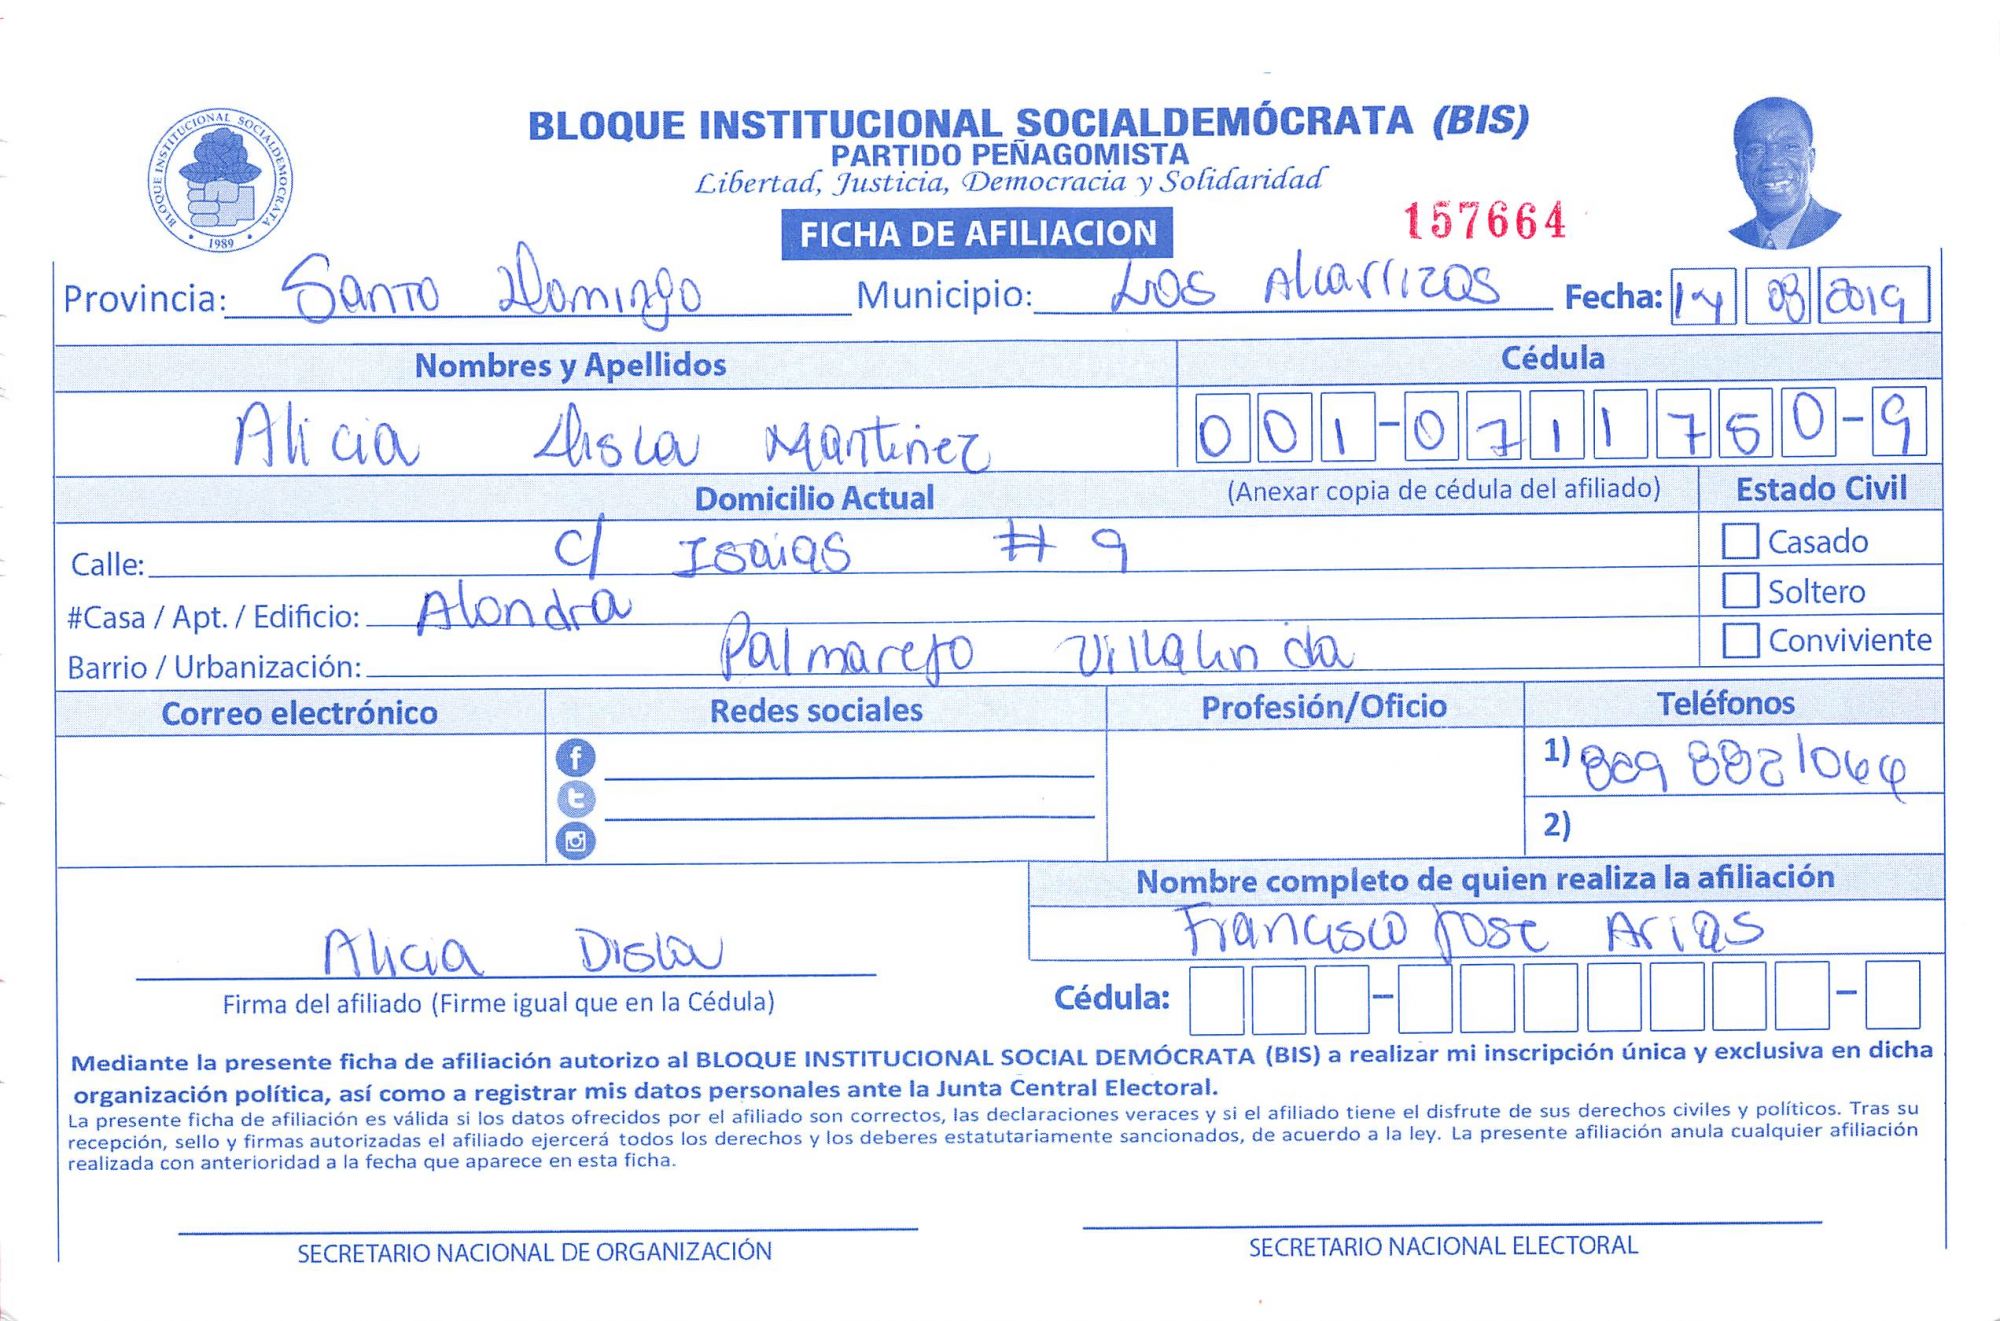 BLOQUE INSTITUCIONAL SOCIALDEMÓCRATA (BIS)
PARTIDO PEÑAGOMISTA
Libertad, Justicia, Democracia y Solidaridad
BLOQUE INSTITUCIONAL SOCIALDEMOCRATA
• 1989 •
157664
FICHA DE AFILIACION
Provincia: Santo Domingo Municipio: Los Alcarrizos Fecha: 14 08 2019
Nombres y Apellidos Cédula
Alicia Disla Martinez 001-0711750-9
Domicilio Actual (Anexar copia de cédula del afiliado) Estado Civil
Calle: C/ Isaias # 9 Casado
#Casa / Apt. / Edificio: Alondra Soltero
Barrio / Urbanización: Palmarejo Villalinda Conviviente
Correo electrónico Redes sociales Profesión/Oficio Teléfonos
1) 809 8821064
2)
Nombre completo de quien realiza la afiliación
Francisco Jose Arias
Alicia Disla
Firma del afiliado (Firme igual que en la Cédula) Cédula: - -
Mediante la presente ficha de afiliación autorizo al BLOQUE INSTITUCIONAL SOCIAL DEMÓCRATA (BIS) a realizar mi inscripción única y exclusiva en dicha
organización política, así como a registrar mis datos personales ante la Junta Central Electoral.
La presente ficha de afiliación es válida si los datos ofrecidos por el afiliado son correctos, las declaraciones veraces y si el afiliado tiene el disfrute de sus derechos civiles y políticos. Tras su
recepción, sello y firmas autorizadas el afiliado ejercerá todos los derechos y los deberes estatutariamente sancionados, de acuerdo a la ley. La presente afiliación anula cualquier afiliación
realizada con anterioridad a la fecha que aparece en esta ficha.
SECRETARIO NACIONAL DE ORGANIZACIÓN SECRETARIO NACIONAL ELECTORAL